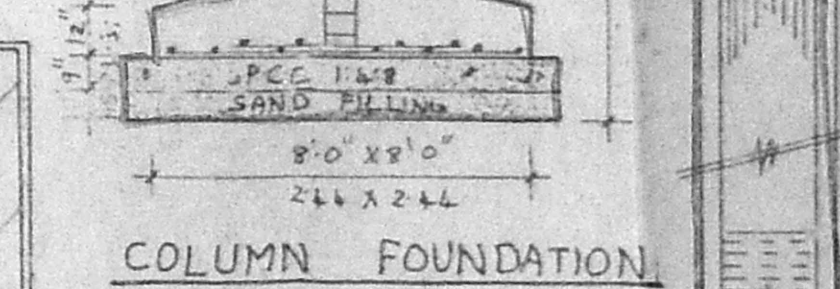 9" 12"
PCC 1:4:8
SAND FILLING
8'-0" X 8'-0"
2.44 X 2.44
COLUMN FOUNDATION